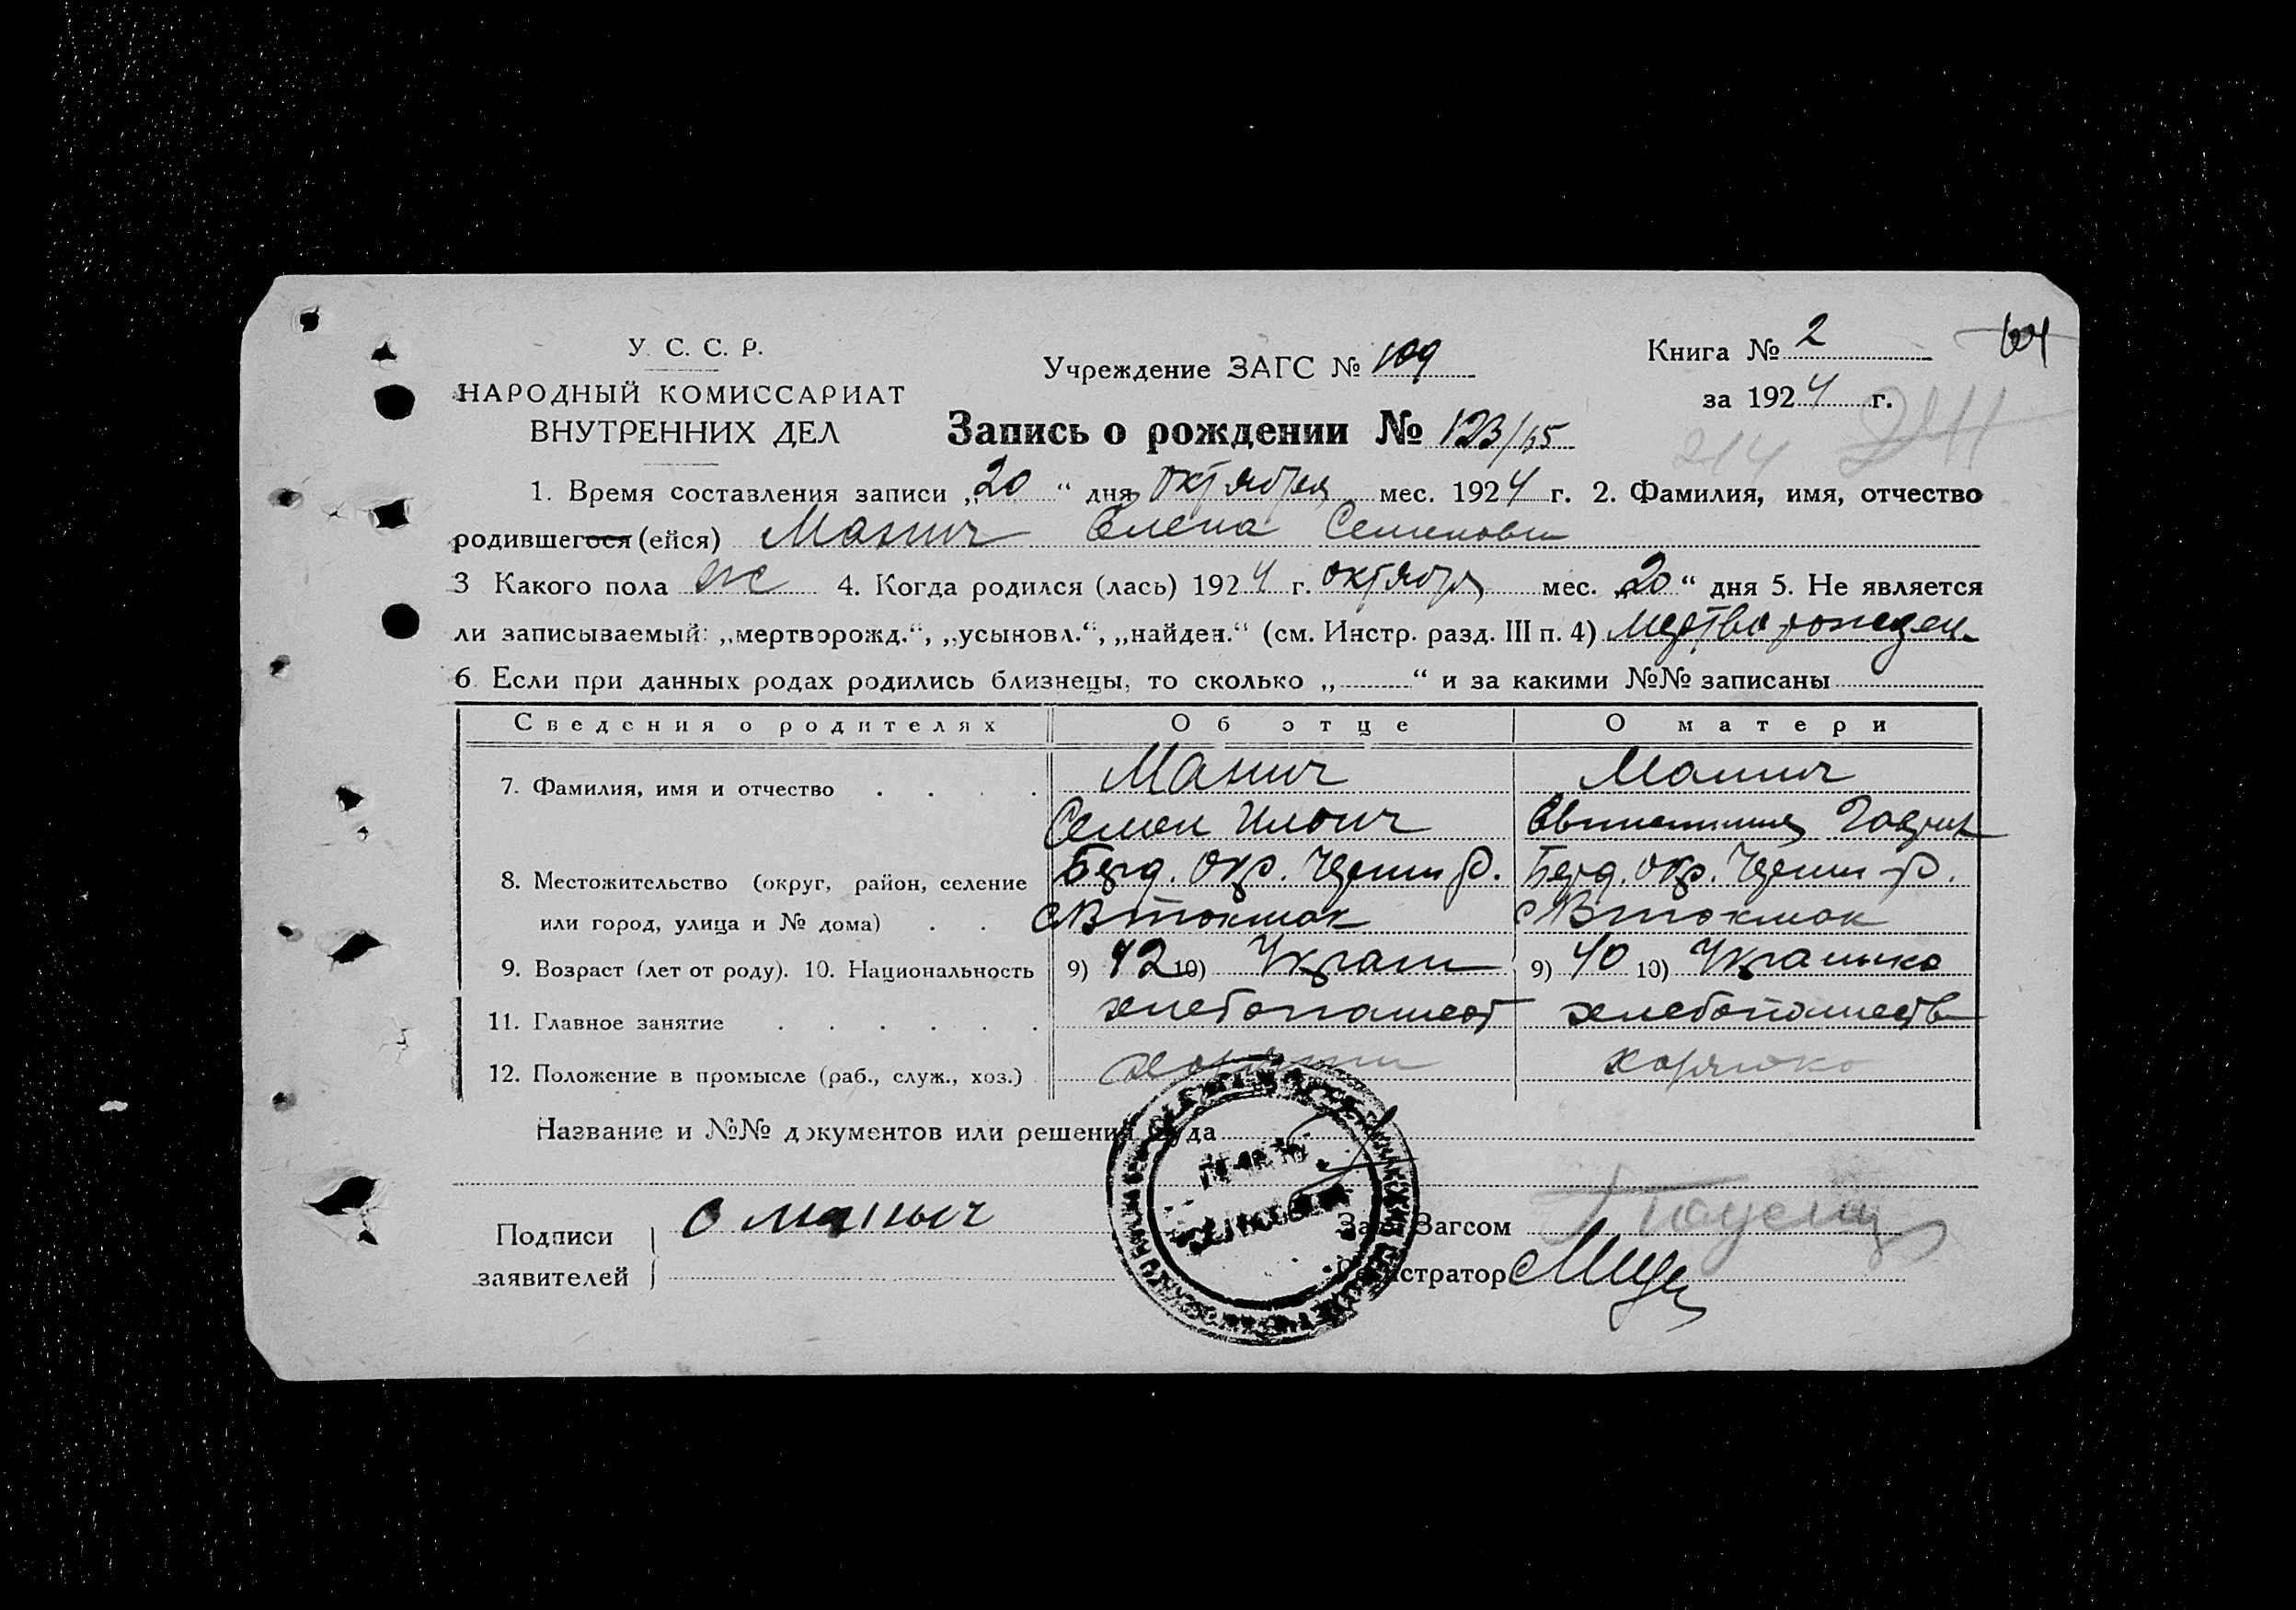 У. С. С. Р.
НАРОДНЫЙ КОМИССАРИАТ
ВНУТРЕННИХ ДЕЛ
Учреждение ЗАГС № 109
Книга № 2
за 1924 г.
214
Запись о рождении № 123/15
1. Время составления записи „20“ дня октября мес. 1924 г. 2. Фамилия, имя, отчество
родившегося (ейся) Манич Елена Семеновн
3 Какого пола ж 4. Когда родился (лась) 1924 г. октября мес. „20“ дня 5. Не является
ли записываемый: „мертворожд.“, „усыновл.“, „найден.“ (см. Инстр. разд. III п. 4) мертво рожден.
6. Если при данных родах родились близнецы, то сколько „ “ и за какими №№ записаны
Сведения о родителях Об отце О матери
7. Фамилия, имя и отчество . . . . Манич Манич
Семен Ильич
8. Местожительство (округ, район, селение Берд. окр. Черниг р. Берд. окр. Черниг р.
или город, улица и № дома) . . с В токмак с В токмак
9. Возраст (лет от роду). 10. Национальность 9) 42 10) Украин 9) 40 10) Украинка
11. Главное занятие . . . . . . хлебопашест хлебопашеств
12. Положение в промысле (раб., служ., хоз.) хозяин хозяйка
Название и №№ документов или решения суда
Подписи
заявителей
С маныч
Зав. Загсом
Регистратор